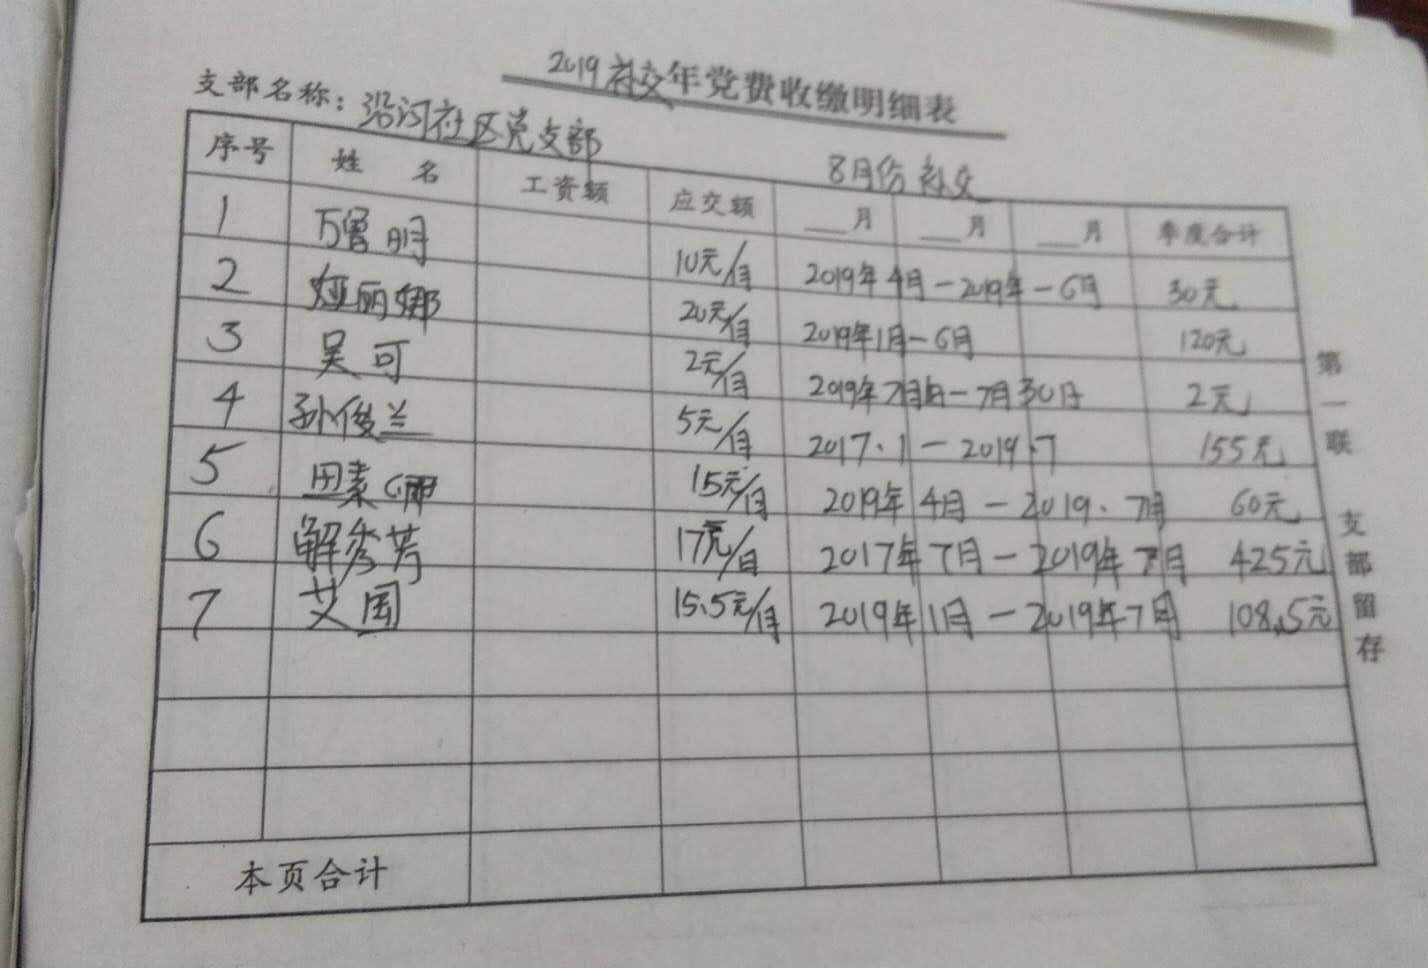 2019补交年党费收缴明细表
支部名称：沿河社区党支部
8月份补交
序号 姓 名 工资额 应交额 ___月 ___月 ___月 季度合计
1 万曾明 10元/月 2019年4月-2019年-6月 30元
2 娅丽娜 20元/月 2019年1月-6月 120元
3 吴可 2元/月 2019年7月1日-7月30日 2元
4 孙俊兰 5元/月 2017.1-2019.7 155元
5 田素 15元/月 2019年4月-2019.7月 60元
6 解秀芳 17元/月 2017年7月-2019年7月 425元
7 艾国 15.5元/月 2019年1月-2019年7月 108.5元
本页合计
第一联 支部留存